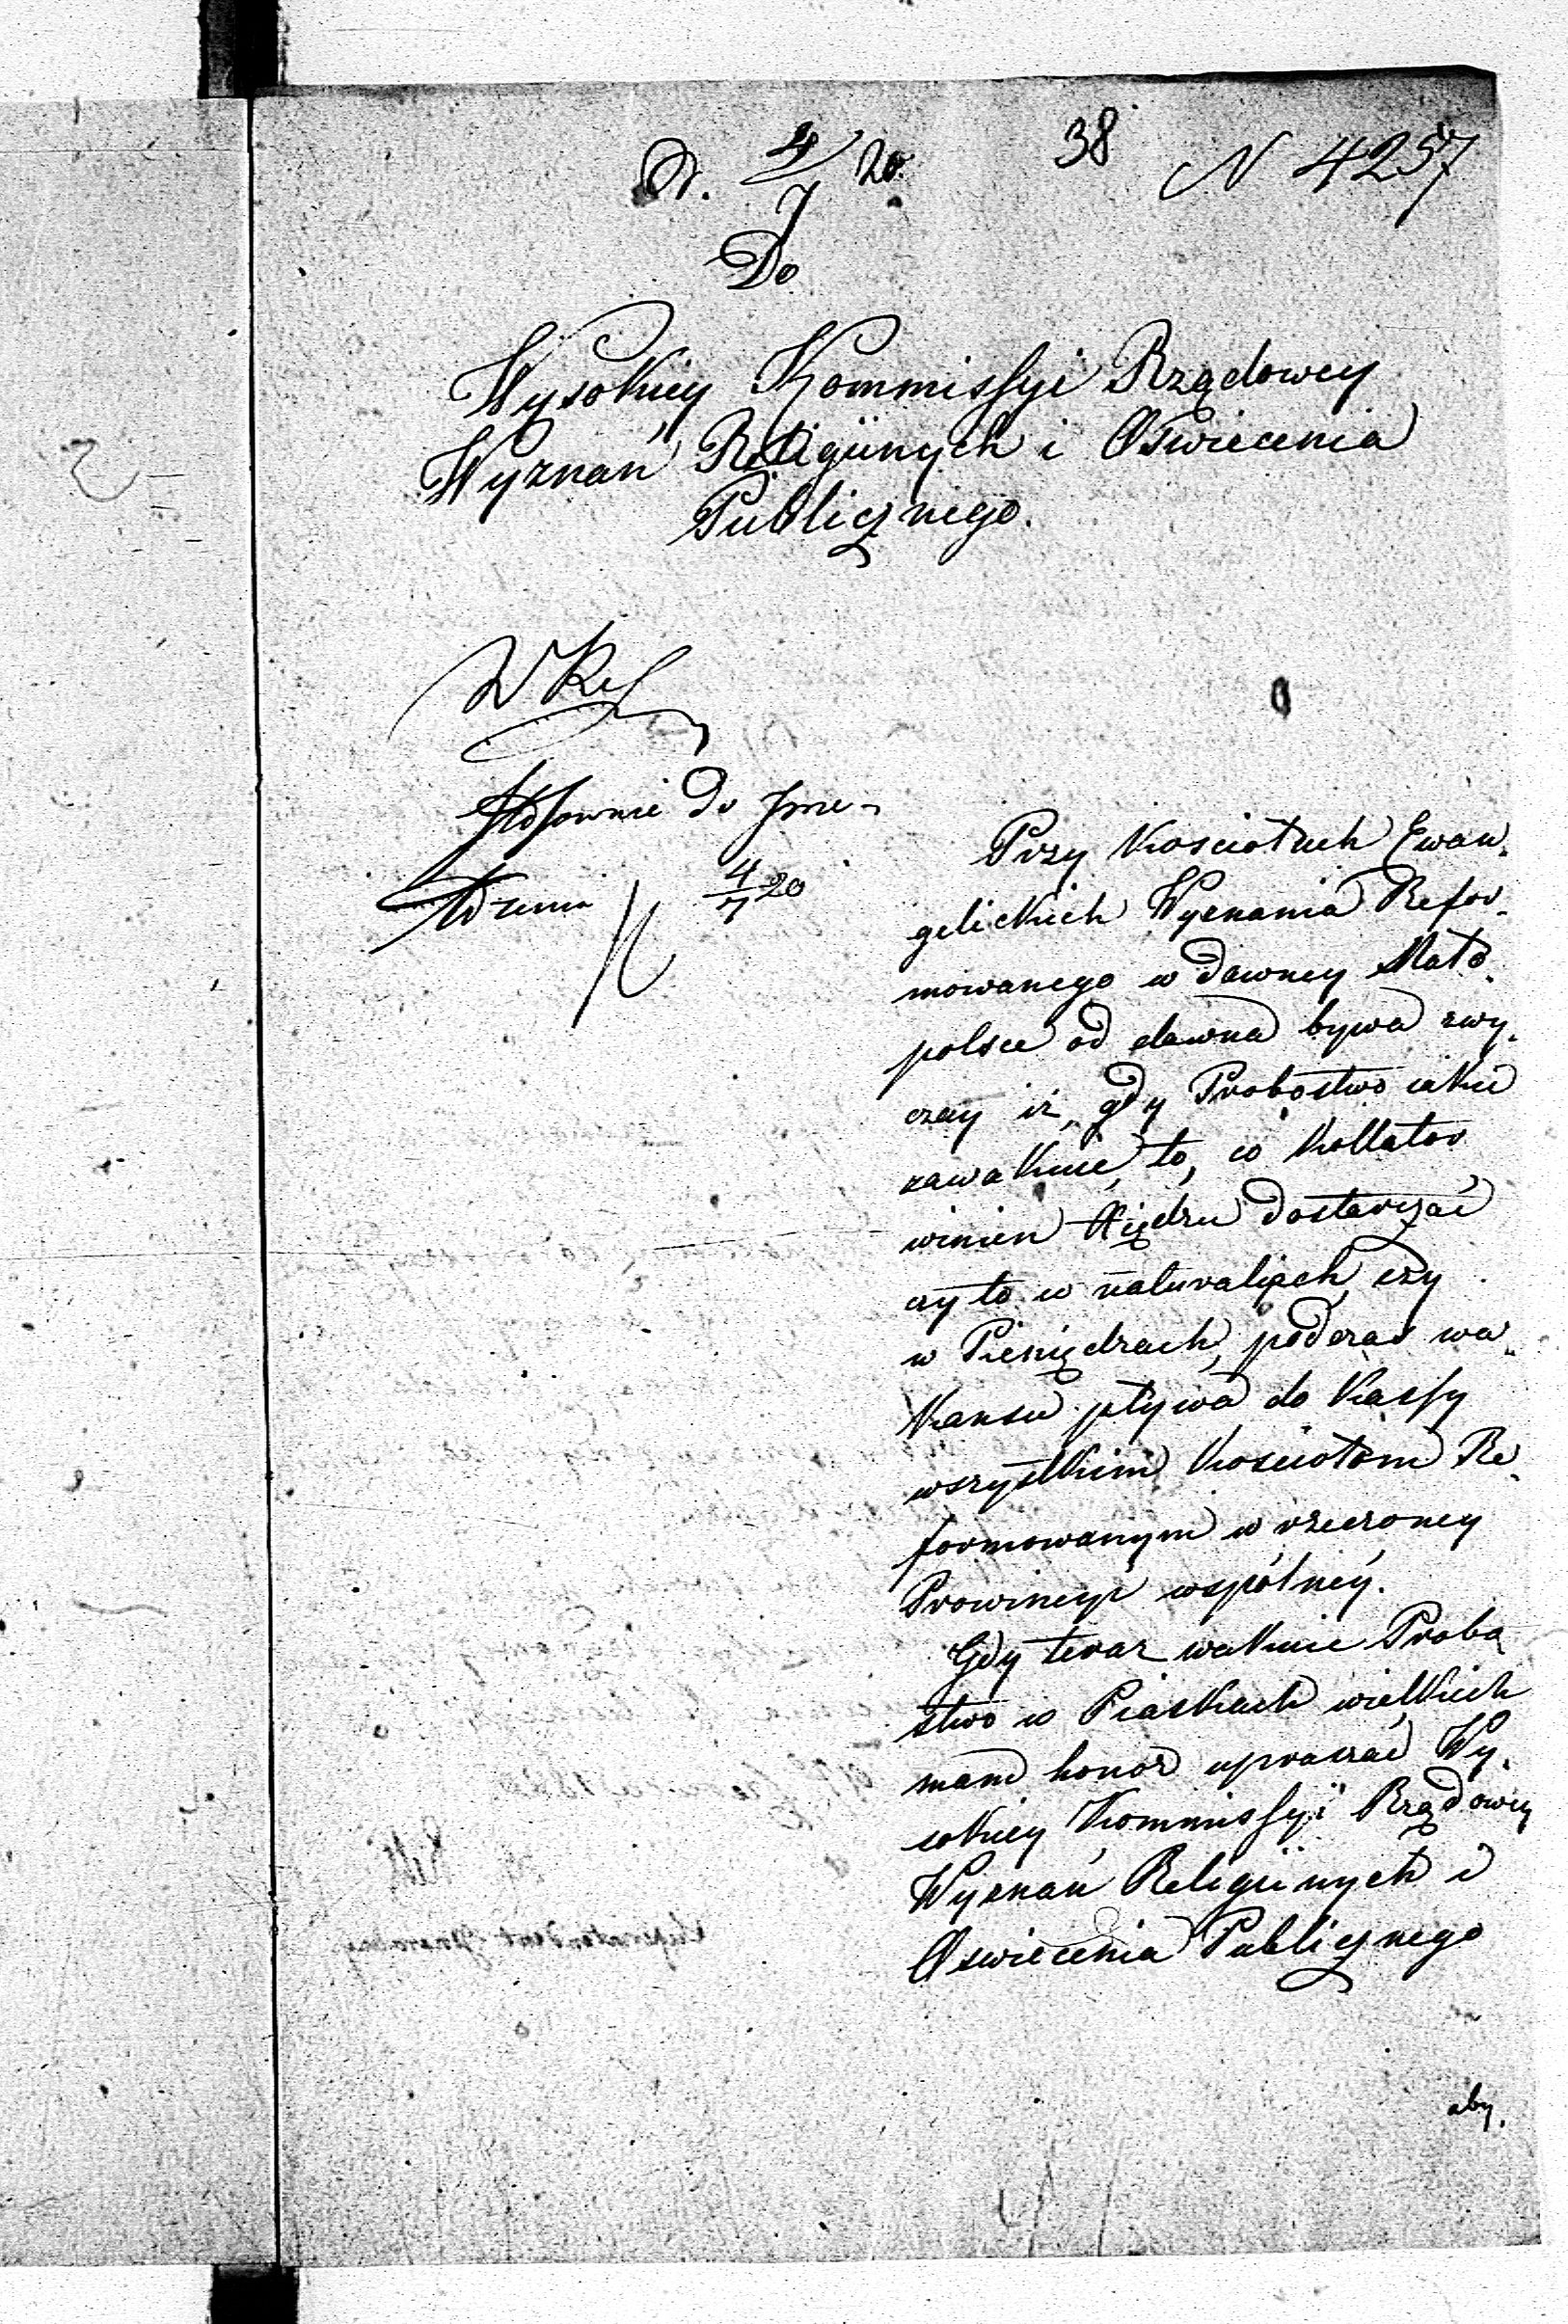 38
N 4257
4/7 20.
Do
Wysokiey Kommissyi Rządowey
Wyznań Religiinych i Oświecenia
Publicznego.
Stosownie do
4/7 20
Przy Kościołach Ewan-
gelickich Wyznania Refor-
mowanego w dawney Mało-
polsce od dawna bywa zwy-
czay iż, gdy Probostwo iakie
zawakuie, to, co Kollator
winien Xiędzu dostarczać
czy to w naturaliach, czy
w Pieniędzach, podczas wa-
kansu pływa do Kassy
wszystkim Kościołom Re-
formowanym w rzeczoney
Prowincyi wspólney.
Gdy teraz wakuie Probo-
stwo w Piaskach wielkich
mam honor upraszać Wy-
sokiey Kommissyi Rządowey
Wyznań Religiinych i
Oświecenia Publicznego
aby.